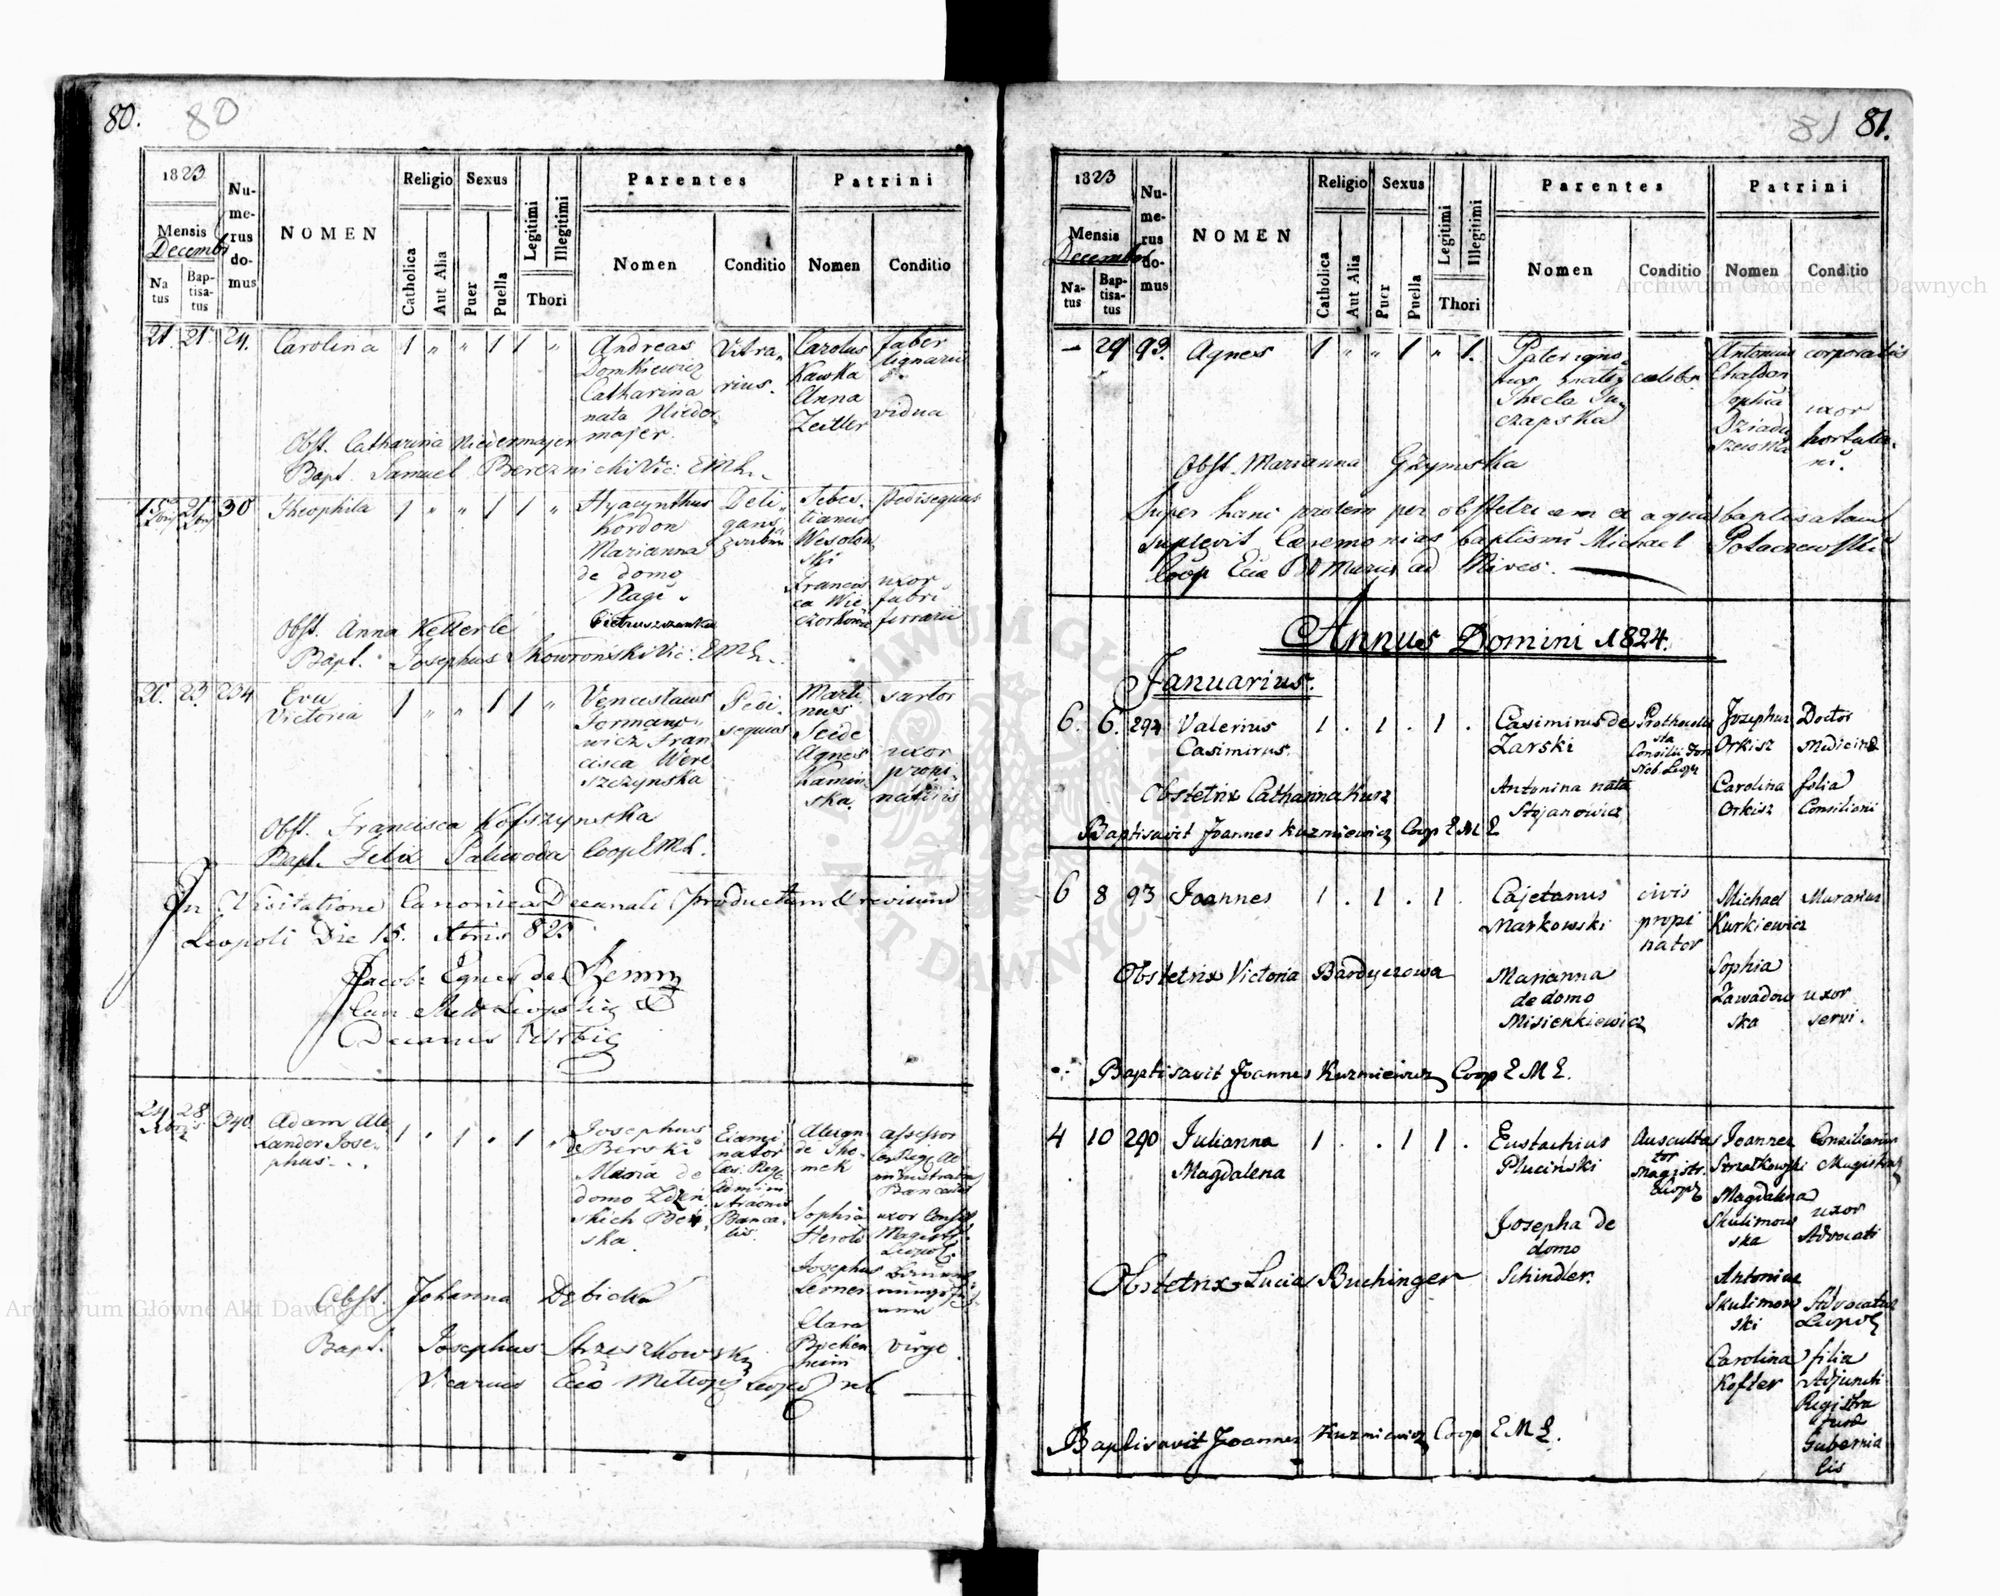 80. 80
1823
Mensis
Decembr
Na
tus
Bap-
tisa-
tus
Nu-
me-
rus
do-
mus
NOMEN
Religio
Catholica
Aut Alia
Sexus
Puer
Puella
Legitimi
Illegitimi
Thori
Parentes
Nomen
Conditio
Patrini
Nomen
Conditio
21. 21. 24. Carolina 1 " " 1 1 "
Andreas
Domkiewicz
Catharina
nata Nieder
majer.
Vitra
rius.
Carolus
Kawka
Anna
Zeitler
faber
lignarius
vidua
Obst. Catharina Niedermajer
Bapt. Samuel Bereznicki Vic: EML.
15 21 30 Theophila 1 " " 1 1 "
Hyacynthus
Kordon
Marianna
de domo
Nagi
Pietruszewska
Sebas
tianus
Wesolow
ski
Francis
ca Wie
czorkowa
pedisequus
uxor
fabri
ferrarii
Obst. Anna Kellerle
Bapt. Josephus Skowronski Vic: EML.
21. 23. 234 Eva
Victoria 1 " " 1 1 "
Venceslaus
Francisca Were
szczynska
Pedi
sequus
Marti
nus
Seide
Agnes
Kamin
ska.
sartor
uxor
propi
natoris
Obst. Francisca Kofszynska
Bapt. Felix Paliwoda Coop EML.
In Visitatione Canonica Decanali productum & revisum
Leopoli Die 15. Xbris 823
24 28 340. Adam Ale
xander Jose
phus 1 . 1 . 1 "
Josephus
de Birski
Maria de
domo
ska
Exami
nator
Caes. Reg.
Admini
strationis
Banca
lis.
Sophia
Herold
Josephus
Lerner
Clara
heim
assessor
uxor Consil
Magistr.
Leopol.
virgo.
Obst. Johanna Debicka
Bapt. Josephus Strzeszkowski
Vicarius Eccl
81 81.
1823
Mensis
Decembr
Na-
tus
Bap-
tisa-
tus
Nu-
me-
rus
do-
mus
NOMEN
Religio
Catholica
Aut Alia
Sexus
Puer
Puella
Legitimi
Illegitimi
Thori
Parentes
Nomen
Conditio
Patrini
Nomen
Conditio
— 29 93. Agnes 1 " " 1 " 1.
Pater igno
tus mater
Thecla Tu
czapska
caelebs
Antonius
Sophia
Dziadu
szewska
corporalis
uxor
hortula
ni.
Obst. Marianna Grzymska
Super hanc prolem per obstetricem ex aqua baptisatam
suplevit Caeremonias baptismi Michael Potaczewski
Coop Eciae B. Mariae ad Nives.
Annus Domini 1824.
Januarius.
6. 6. 294 Valerius
Casimirus. 1 . 1 . 1 .
Casimirus de
Zarski
Antonina nata
Stojanowicz
Josephus
Orkisz
Carolina
Orkisz
Doctor
Medicinae
filia
Consiliarii
Obstetrix Catharina Kurz
Baptisavit Joannes Kuzmiewicz Coop E M L
6 8 93 Joannes 1 . 1 . 1 .
Cajetanus
Markowski
Marianna
de domo
Misienkiewicz
civis
propi
nator
Michael
Kurkiewicz
Sophia
Zawadow
ska
Murarius
uxor
servi.
Obstetrix Victoria Bardyczowa
Baptisavit Joannes Kuzmiewicz Coop E M L.
4 10 290 Julianna
Magdalena 1 . . 1 1 .
Eustachius
Pluciński
Josepha de
domo
Schindler.
Auscultan
tor
Magistr.
Leopol
Joannes
Strzalkowski
Magdalena
Skulimow
ska
Antonius
Skulimow
ski
Carolina
Kofler
Consiliarius
Magistrat
uxor
Advocati
Advocatus
Leopol
filia
Adjuncti
Registra
turae
Gubernia
lis
Obstetrix Lucia Buchinger
Baptisavit Joannes Kuzmiewicz Coop E M L.
Archiwum Główne Akt Dawnych
Archiwum Główne Akt Dawnych
ARCHIWUM GŁÓWNE AKT DAWNYCH